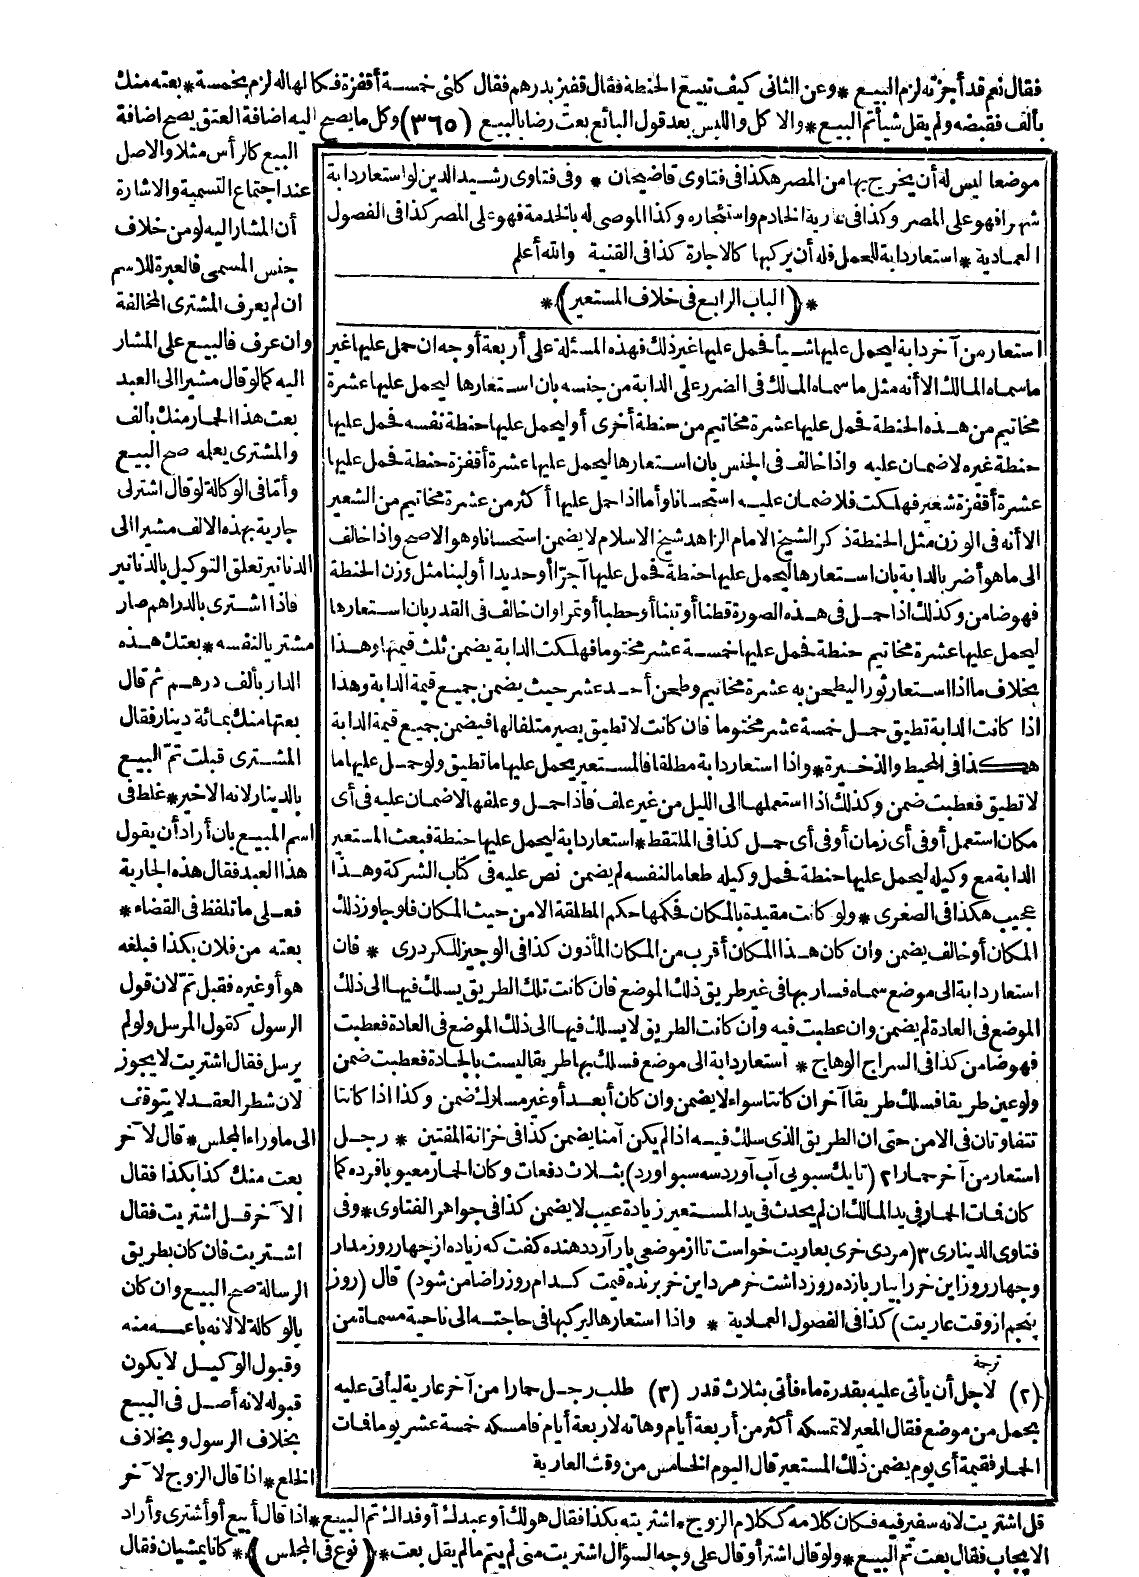 فقال نعم قد أجزته لزم البيع * وعن الثانى كيف تبيع الحنطة فقال قفيز بدرهم فقال كلنى خمسة أقفزة فكالها له لزم بخمسة * بعته منك
بألف فقبضه ولم يقل شيأ تم البيع * والاكل واللبس بعد قول البائع بعت رضا بالبيع (٣٦٥) وكل ما يصح اليه اضافة العتق يصح اضافة
البيع كالرأس مثلا والاصل
عند اجتماع التسمية والاشارة
أن المشار اليه لو من خلاف
جنس المسمى فالعبرة للاسم
ان لم يعرف المشترى المخالفة
وان عرف فالبيع على المشار
اليه كما لو قال مشيرا الى العبد
بعت هذا الحمار منك بألف
والمشترى يعلمه صح البيع
وأما فى الوكالة لو قال اشترلى
جارية بهذه الالف مشيرا الى
الدنانير تعلق التوكيل بالدنانير
فاذا اشترى بالدراهم صار
مشتريا لنفسه * بعتك هذه
الدار بألف درهم ثم قال
بعتها منك بمائة دينار فقال
المشترى قبلت تم البيع
بالدينار لانه الاخير * غلط فى
اسم المبيع بان أراد أن يقول
هذا العبد فقال هذه الجارية
فعلى ما تلفظ فى القضاء *
بعته من فلان بكذا فبلغه
هو أو غيره فقبل تم لان قول
الرسول كقول المرسل ولو لم
يرسل فقال اشتريت لا يجوز
لان شطر العقد لا يتوقف
الى ما وراء المجلس * قال لآخر
بعت منك كذا بكذا فقال
الآخر قل اشتريت فقال
اشتريت فان كان بطريق
الرسالة صح البيع وان كان
بالوكالة لا لانه باعه منه
وقبول الوكيل لا يكون
قبوله لانه أصل فى البيع
بخلاف الرسول وبخلاف
الخلع * اذا قال الزوج لآخر
موضعا ليس له أن يخرج بها من المصر هكذا فى فتاوى قاضيخان * وفى فتاوى رشيد الدين لو استعار دابة
شهرا فهو على المصر وكذا فى عارية الخادم واستئجاره وكذا الموصى له بالخدمة فهو على المصر كذا فى الفصول
العمادية * استعار دابة للعمل فله أن يركبها كالاجارة كذا فى القنية والله أعلم
* (الباب الرابع فى خلاف المستعير) *
استعار من آخر دابة ليحمل عليها شيأ فحمل عليها غير ذلك فهذه المسئلة على أربعة أوجه ان حمل عليها غير
ما سماه المالك الا أنه مثل ما سماه المالك فى الضرر على الدابة من جنسه بان استعارها ليحمل عليها عشرة
مخاتيم من هذه الحنطة فحمل عليها عشرة مخاتيم من حنطة أخرى أو ليحمل عليها حنطة نفسه فحمل عليها
حنطة غيره لا ضمان عليه واذا خالف فى الجنس بان استعارها ليحمل عليها عشرة أقفزة حنطة فحمل عليها
عشرة أقفزة شعير فهلكت فلا ضمان عليه استحسانا وأما اذا حمل عليها أكثر من عشرة مخاتيم من الشعير
الا أنه فى الوزن مثل الحنطة ذكر الشيخ الامام الزاهد شيخ الاسلام لا يضمن استحسانا وهو الاصح واذا خالف
الى ما هو أضر بالدابة بان استعارها ليحمل عليها حنطة فحمل عليها آجرا أو حديدا أو لبنا مثل وزن الحنطة
فهو ضامن وكذلك اذا حمل فى هذه الصورة قطنا أو تبنا أو حطبا أو تمرا وان خالف فى القدر بان استعارها
ليحمل عليها عشرة مخاتيم حنطة فحمل عليها خمسة عشر مختوما فهلكت الدابة يضمن ثلث قيمتها وهذا
بخلاف ما اذا استعار ثورا ليطحن به عشرة مخاتيم وطحن أحد عشر حيث يضمن جميع قيمة الدابة وهذا
اذا كانت الدابة تطيق حمل خمسة عشر مختوما فان كانت لا تطيق يصير متلفا لها فيضمن جميع قيمة الدابة
هكذا فى المحيط والذخيرة * واذا استعار دابة مطلقا فالمستعير يحمل عليها ما تطيق ولو حمل عليها ما
لا تطيق فعطبت ضمن وكذلك اذا استعملها الى الليل من غير علف فاذا حمل وعلفها لا ضمان عليه فى أى
مكان استعمل أو فى أى زمان أو فى أى حمل كذا فى الملتقط * استعار دابة ليحمل عليها حنطة فبعث المستعير
الدابة مع وكيله ليحمل عليها حنطة فحمل وكيله طعاما لنفسه لم يضمن نص عليه فى كتاب الشركة وهذا
عجيب هكذا فى الصغرى * ولو كانت مقيدة بالمكان فحكمها حكم المطلقة الا من حيث المكان فلو جاوز ذلك
المكان أو خالف يضمن وان كان هذا المكان أقرب من المكان المأذون كذا فى الوجيز للكردرى * فان
استعار دابة الى موضع سماه فسار بها فى غير طريق ذلك الموضع فان كانت تلك الطريق يسلك فيها الى ذلك
الموضع فى العادة لم يضمن وان عطبت فيه وان كانت الطريق لا يسلك فيها الى ذلك الموضع فى العادة فعطبت
فهو ضامن كذا فى السراج الوهاج * استعار دابة الى موضع فسلك بها طريقا ليست بالجادة فعطبت ضمن
ولو عين طريقا فسلك طريقا آخر ان كانتا سواء لا يضمن وان كان أبعد أو غير مسلوك ضمن وكذا اذا كانتا
تتفاوتان فى الامن حتى ان الطريق الذى سلك فيه اذا لم يكن آمنا يضمن كذا فى خزانة المفتين * رجل
استعار من آخر حمارا ٢ (تا يك سبويى آب آورد سه سبو اورد) بثلاث دفعات وكان الحمار معيوبا فرده كما
كان فمات الحمار فى يد المالك ان لم يحدث فى يد المستعير زيادة عيب لا يضمن كذا فى جواهر الفتاوى * وفى
فتاوى الدينارى ٣ (مردى خرى بعاريت خواست تا از موضعى بار آرد دهنده كفت كه زياده از چهار روز مدار
وچهار روز اين خر را بيار پانزده روز داشت خر مرد اين خر برنده قيمت كدام روز را ضامن شود) قال (روز
پنجم از وقت عاريت) كذا فى الفصول العمادية * واذا استعارها ليركبها فى حاجته الى ناحية مسماة من
ترجمة
(٢) لاجل أن يأتى عليه بقدرة ماء فأتى بثلاث قدر (٣) طلب رجل حمارا من آخر عارية ليأتى عليه
بحمل من موضع فقال المعير لا تمسكه أكثر من أربعة أيام وهاته لاربعة أيام فامسكه خمسة عشر يوما فمات
الحمار فقيمة أى يوم يضمن ذلك المستعير قال اليوم الخامس من وقت العارية
قل اشتريت لانه سفير فيه فكان كلامه ككلام الزوج * اشتريته بكذا فقال هو لك أو عبدك أو فداك تم البيع * اذا قال أبيع أو أشترى وأراد
الايجاب فقال بعت تم البيع * ولو قال اشتر أو قال على وجه السؤال اشتريت منى لم يتم ما لم يقل بعت * (نوع فى المجلس) * كانا يمشيان فقال